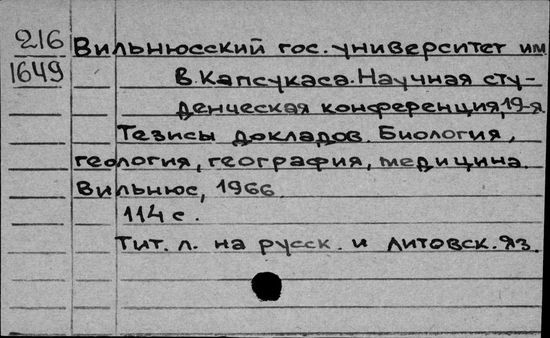 216
1649
Вильнюсский гос. университет им
В. Капсукаса. Научная сту-
денческая конференция, 19-я
Тезисы докладов. Биология,
геология, география, медицина.
Вильнюс, 1966.
114 с.
Тит. л. на русск. и литовск. яз.